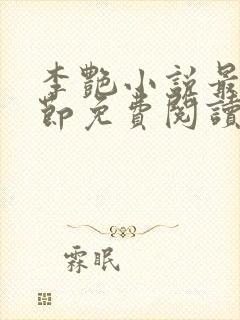 李艷小說最
節免費閱讀
霖眠